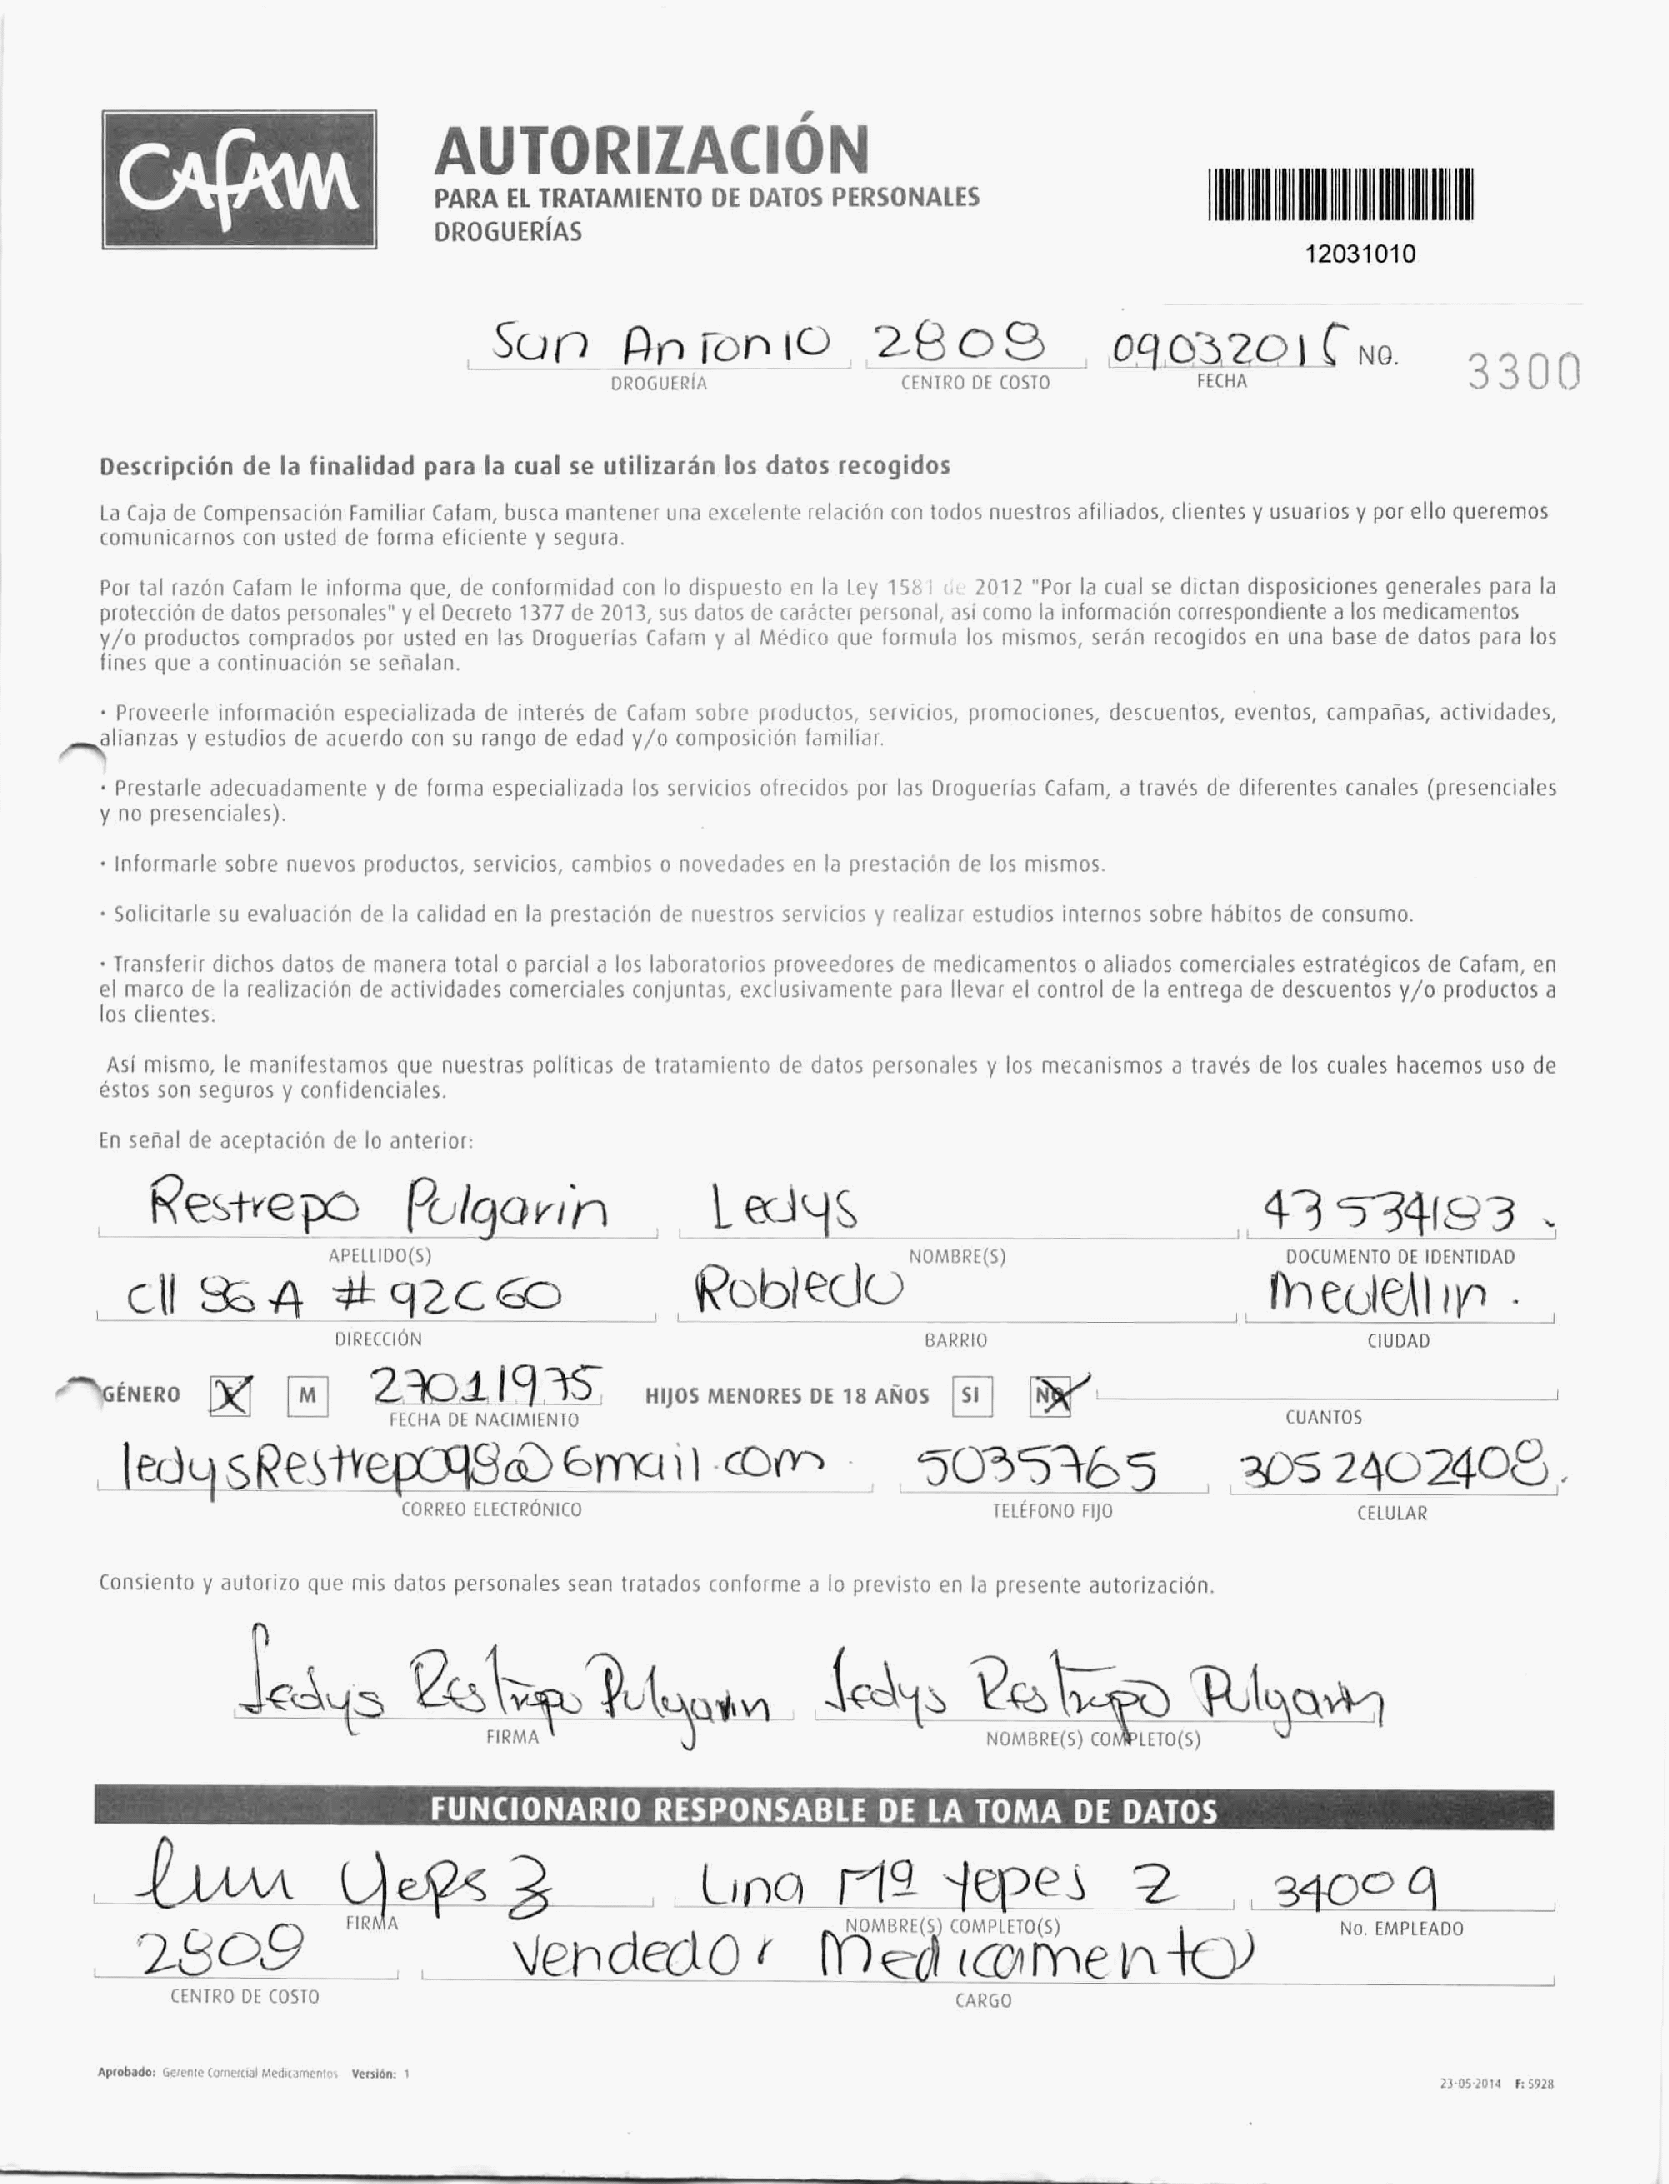 Cafam
AUTORIZACIÓN
PARA EL TRATAMIENTO DE DATOS PERSONALES
DROGUERÍAS
12031010
San Antonio 2809 09032015 NO. 3300
DROGUERÍA CENTRO DE COSTO FECHA
Descripción de la finalidad para la cual se utilizarán los datos recogidos
La Caja de Compensación Familiar Cafam, busca mantener una excelente relación con todos nuestros afiliados, clientes y usuarios y por ello queremos
comunicarnos con usted de forma eficiente y segura.
Por tal razón Cafam le informa que, de conformidad con lo dispuesto en la Ley 1581 de 2012 "Por la cual se dictan disposiciones generales para la
protección de datos personales" y el Decreto 1377 de 2013, sus datos de carácter personal, así como la información correspondiente a los medicamentos
y/o productos comprados por usted en las Droguerías Cafam y al Médico que formula los mismos, serán recogidos en una base de datos para los
fines que a continuación se señalan.
· Proveerle información especializada de interés de Cafam sobre productos, servicios, promociones, descuentos, eventos, campañas, actividades,
alianzas y estudios de acuerdo con su rango de edad y/o composición familiar.
· Prestarle adecuadamente y de forma especializada los servicios ofrecidos por las Droguerías Cafam, a través de diferentes canales (presenciales
y no presenciales).
· Informarle sobre nuevos productos, servicios, cambios o novedades en la prestación de los mismos.
· Solicitarle su evaluación de la calidad en la prestación de nuestros servicios y realizar estudios internos sobre hábitos de consumo.
· Transferir dichos datos de manera total o parcial a los laboratorios proveedores de medicamentos o aliados comerciales estratégicos de Cafam, en
el marco de la realización de actividades comerciales conjuntas, exclusivamente para llevar el control de la entrega de descuentos y/o productos a
los clientes.
Así mismo, le manifestamos que nuestras políticas de tratamiento de datos personales y los mecanismos a través de los cuales hacemos uso de
éstos son seguros y confidenciales.
En señal de aceptación de lo anterior:
Restrepo Pulgarin Ledys 43534183.
APELLIDO(S) NOMBRE(S) DOCUMENTO DE IDENTIDAD
cll 86 A # 92C60 Robledo medellin.
DIRECCIÓN BARRIO CIUDAD
GÉNERO X M 27011975 HIJOS MENORES DE 18 AÑOS SI NO
FECHA DE NACIMIENTO CUANTOS
ledysRestrepo98@Gmail.com. 5035765 3052402408.
CORREO ELECTRÓNICO TELÉFONO FIJO CELULAR
Consiento y autorizo que mis datos personales sean tratados conforme a lo previsto en la presente autorización.
Ledys Restrepo Pulgarin Ledys Restrepo Pulgarin
FIRMA NOMBRE(S) COMPLETO(S)
FUNCIONARIO RESPONSABLE DE LA TOMA DE DATOS
Lina Yepes Z Lina Mª Yepes Z 34009
FIRMA NOMBRE(S) COMPLETO(S) No. EMPLEADO
2809 Vendedor Medicamento
CENTRO DE COSTO CARGO
Aprobado: Gerente Comercial Medicamentos Versión: 1
23-05-2014 F: 5928